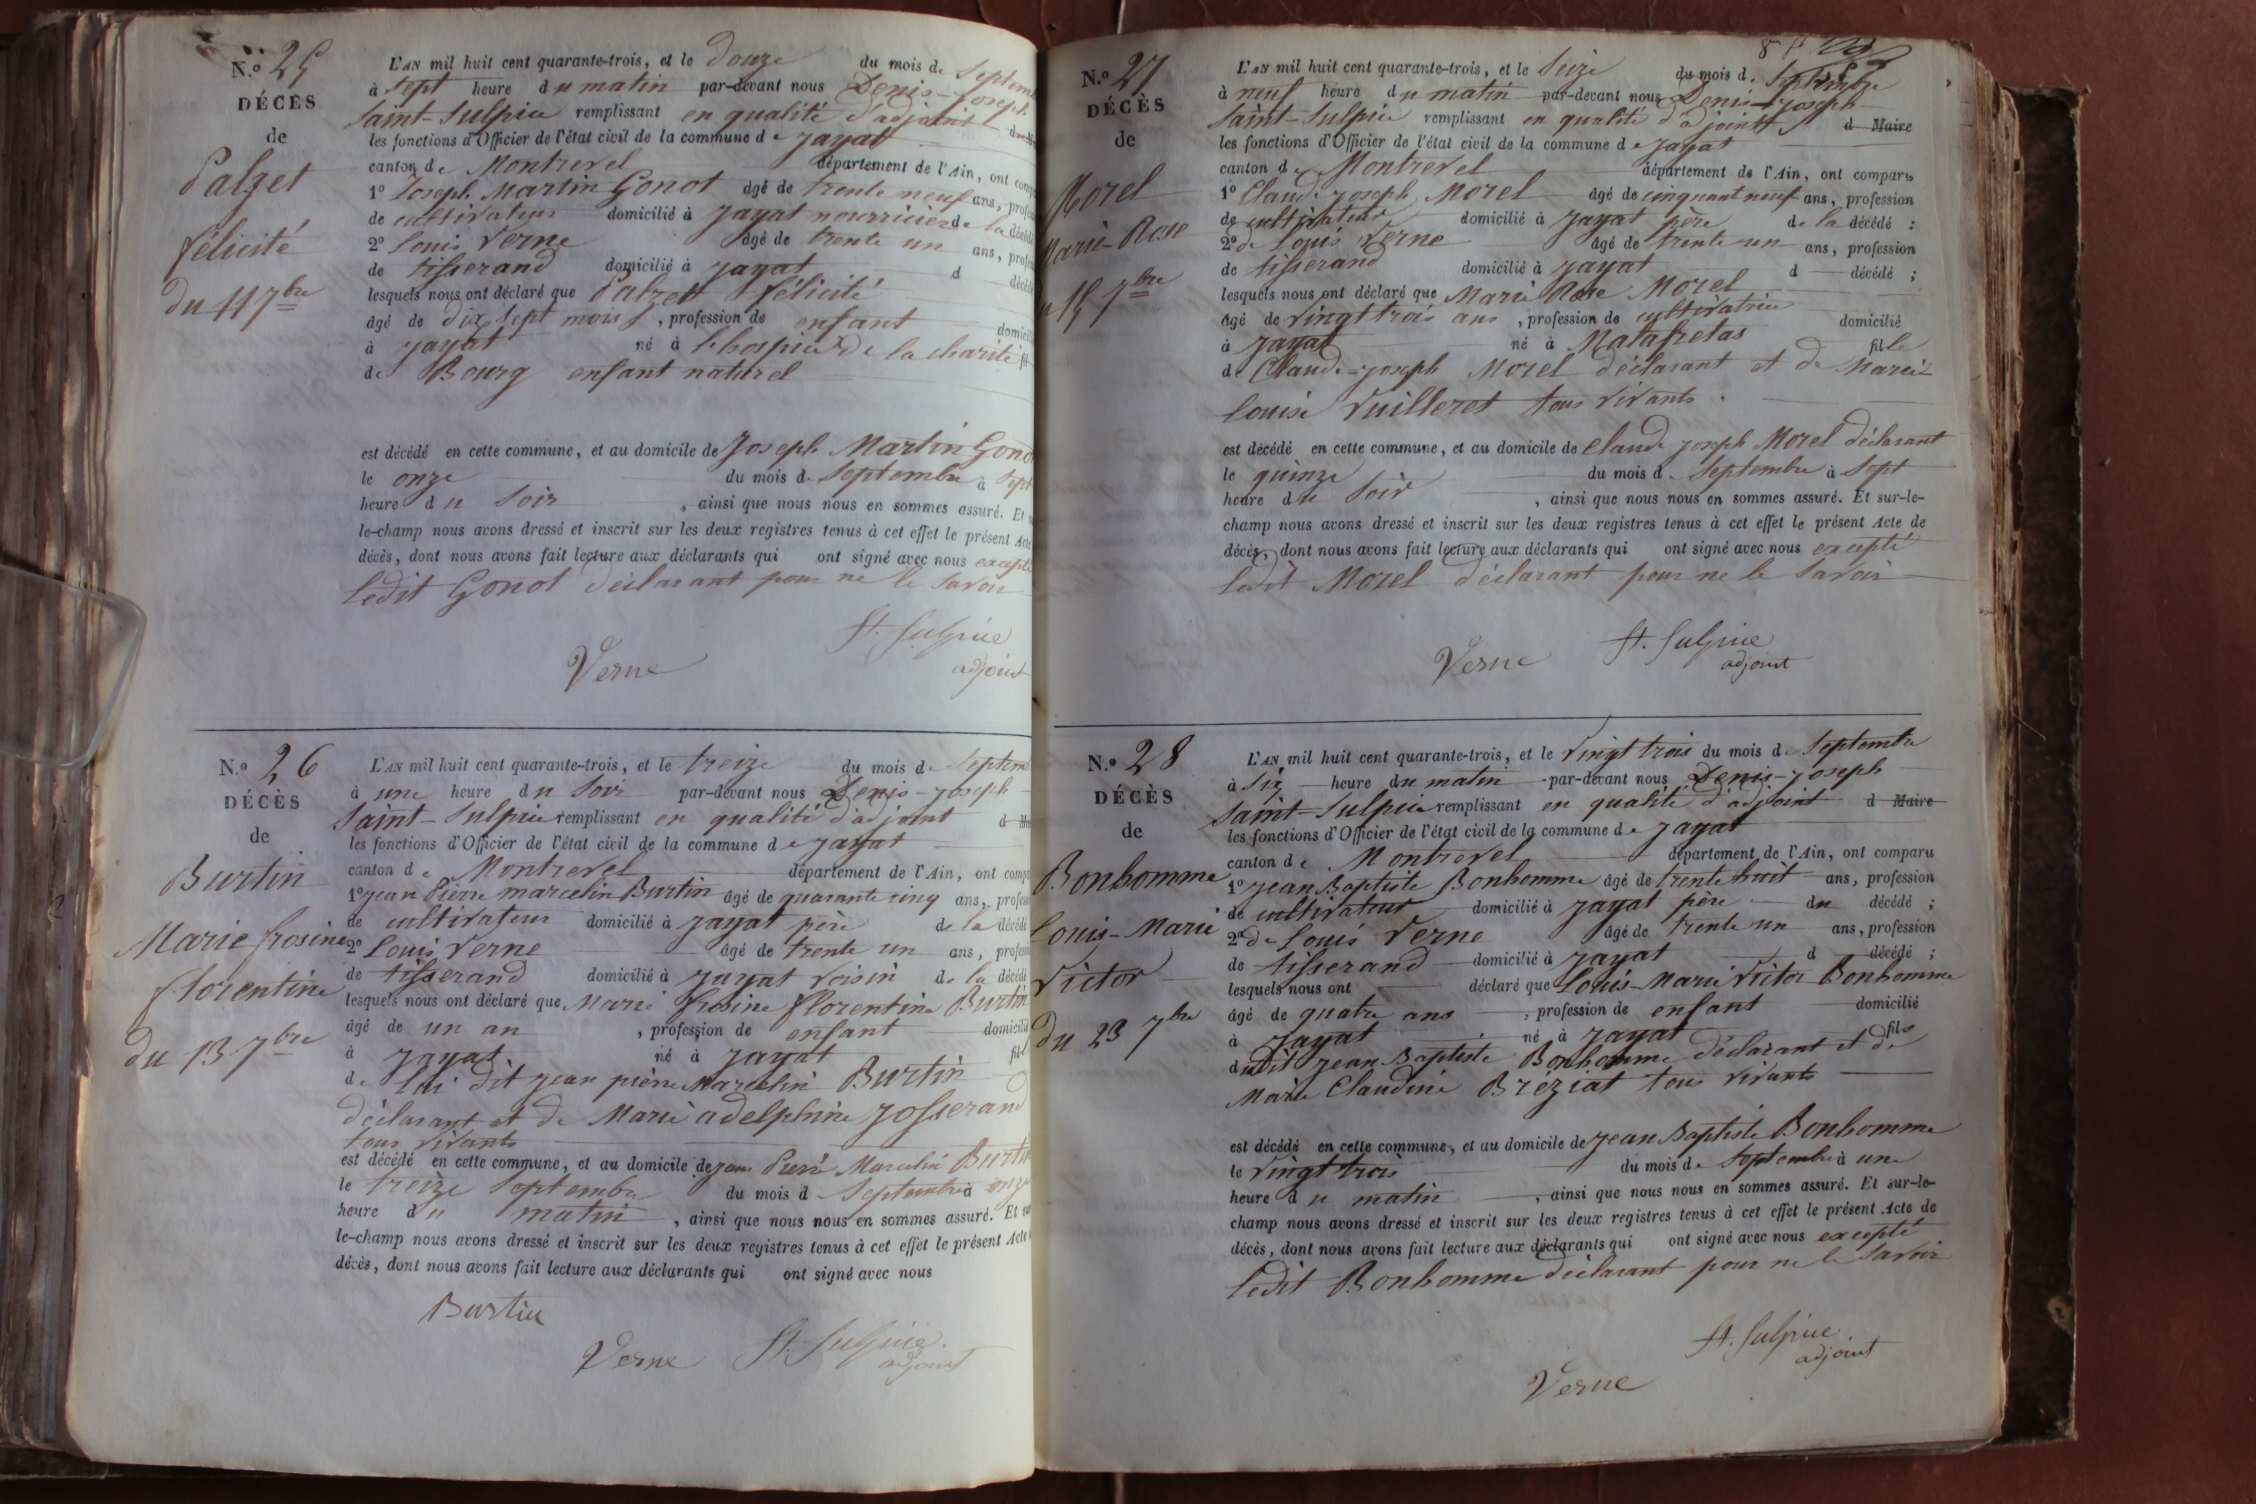 N.º 25
DÉCÈS
de
Palzet
félicité
du 11 7bre
L'AN mil huit cent quarante-trois, et le douze du mois de Septem
à sept heure du matin par-devant nous Denis-Joseph
Saint-Sulpice remplissant en qualité d'adjoint
les fonctions d'Officier de l'état civil de la commune de jayat
canton de Montrevel département de l'Ain, ont comp
1º Joseph Martin Gonot âgé de trente neuf ans, profes
de cultivateur domicilié à jayat nourricier de la décédé
2º Louis Verne âgé de trente un ans, profes
de tisserand domicilié à jayat d décédé
lesquels nous ont déclaré que Palzet félicité
âgé de dix sept mois, profession de enfant domicilié
à jayat né à l'hospice de la charité fil
de Bourg enfant naturel
est décédé en cette commune, et au domicile de Joseph Martin Gonot
le onze du mois de septembre à sept
heure du soir, ainsi que nous nous en sommes assuré. Et
le-champ nous avons dressé et inscrit sur les deux registres tenus à cet effet le présent Acte
décès, dont nous avons fait lecture aux déclarants qui ont signé avec nous excepté
ledit Gonot déclarant pour ne le savoir
Verne St. Sulpice
adjoint
N.º 26
DÉCÈS
de
Burtin
Marie frosine
florentine
du 13 7bre
L'AN mil huit cent quarante-trois, et le treize du mois de Septem
à une heure du soir par-devant nous Denis-Joseph
Saint-Sulpice remplissant en qualité d'adjoint
les fonctions d'Officier de l'état civil de la commune de jayat
canton de Montrevel département de l'Ain, ont comp
1º jean Pierre marcelin Burtin âgé de quarante cinq ans, profess
de cultivateur domicilié à jayat père de la décédé
2º Louis Verne âgé de trente un ans, profess
de tisserand domicilié à jayat voisin de la décédé
lesquels nous ont déclaré que Marie frosine florentine Burtin
âgé de un an, profession de enfant domicilié
à jayat né à jayat fil
de lui dit jean pierre Marcelin Burtin
déclarant et de Marie adelphine Josserand
tous vivants
est décédé en cette commune, et au domicile de jean Pierre Marcelin Burtin
le treize septembre du mois d septembre à onze
heure du matin, ainsi que nous nous en sommes assuré. Et
le-champ nous avons dressé et inscrit sur les deux registres tenus à cet effet le présent Acte
décès, dont nous avons fait lecture aux déclarants qui ont signé avec nous
Burtin
Verne St. Sulpice
adjoint
N.º 27
DÉCÈS
de
Morel
Marie-Rose
15 7bre
L'AN mil huit cent quarante-trois, et le seize du mois de Septembre
à neuf heure du matin par-devant nous Denis-Joseph
Saint-Sulpice remplissant en qualité d'adjoint d Maire
les fonctions d'Officier de l'état civil de la commune de jayat
canton de Montrevel département de l'Ain, ont comparu
1º Claude joseph Morel âgé de cinquant neuf ans, profession
de cultivateur domicilié à jayat père de la décédé :
2º de Louis Verne âgé de trente un ans, profession
de tisserand domicilié à jayat d décédé ;
lesquels nous ont déclaré que Marie Rose Morel
âgé de vingt trois ans, profession de cultivatrice domicilié
à jayat né à Malafretas fille
de Claude-joseph Morel déclarant et de Marie
Louise Vuilleret tous vivants.
est décédé en cette commune, et au domicile de Claude joseph Morel déclarant
le quinze du mois de septembre à sept
heure du soir, ainsi que nous nous en sommes assuré. Et sur-le-
champ nous avons dressé et inscrit sur les deux registres tenus à cet effet le présent Acte de
décès, dont nous avons fait lecture aux déclarants qui ont signé avec nous excepté
ledit Morel déclarant pour ne le savoir
Verne St. Sulpice
adjoint
N.º 28
DÉCÈS
de
Bonhomme
Louis-Marie
Victor
du 23 7bre
L'AN mil huit cent quarante-trois, et le vingt trois du mois de Septembre
à six heure du matin par-devant nous Denis-Joseph
Saint-Sulpice remplissant en qualité d'adjoint d Maire
les fonctions d'Officier de l'état civil de la commune de jayat
canton de Montrevel département de l'Ain, ont comparu
1º jean Baptiste Bonhomme âgé de trente huit ans, profession
de cultivateur domicilié à jayat père du décédé ;
2º de Louis Verne âgé de trente un ans, profession
de tisserand domicilié à jayat d décédé ;
lesquels nous ont déclaré que Louis-Marie Victor Bonhomme
âgé de quatre ans, profession de enfant domicilié
à jayat né à jayat fils
dudit jean Baptiste Bonhomme déclarant et de
Marie Claudine Bréziat tous vivants
est décédé en cette commune, et au domicile de jean Baptiste Bonhomme
le vingt trois du mois de septembre à une
heure du matin, ainsi que nous nous en sommes assuré. Et sur-le-
champ nous avons dressé et inscrit sur les deux registres tenus à cet effet le présent Acte de
décès, dont nous avons fait lecture aux déclarants qui ont signé avec nous excepté
ledit Bonhomme déclarant pour ne le savoir
St. Sulpice
adjoint
Verne